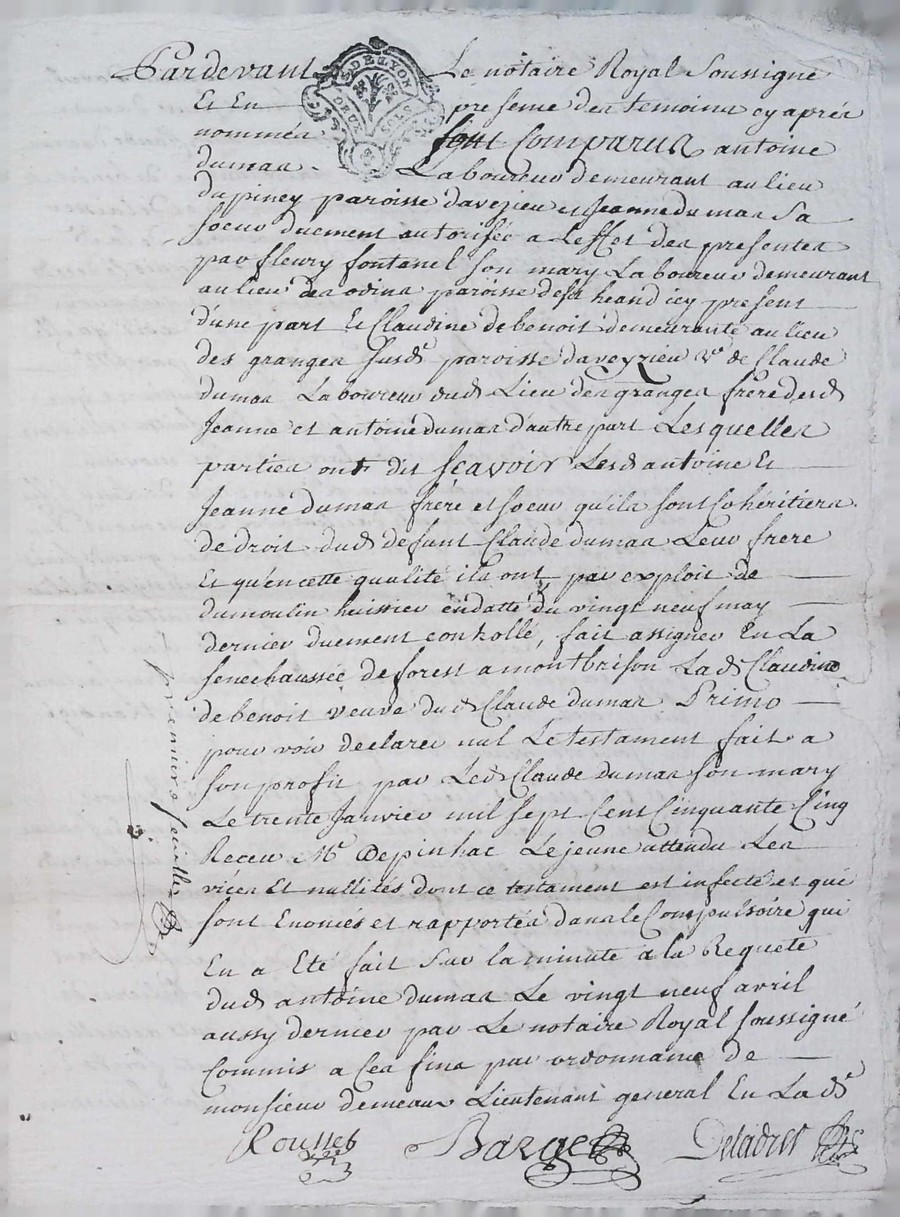 Pardevant Le notaire Royal Soussigné
Et En presence des temoins cy aprés
nommés sont Comparus antoine
dumas Laboureur demeurant au lieu
du piney paroisse daveyrieu et Jeanne dumas Sa
soeur duement autorisée a Leffet des presentes
par fleury fontanel son mary Laboureur demeurant
au lieu des odins paroisse de st heand icy present
d'une part Et Claudine debenoit demeurante au lieu
des granges susd paroisse daveyrieu Ve de Claude
dumas Laboureur dud Lieu des granges frere desd
Jeanne et antoine dumas d'autre part Lesquelles
parties ont dit scavoir Lesd antoine Et
Jeanne dumas frère et soeur qu'ils sont Cohéritiers
de droit dud defunt Claude dumas Leur frere
Et qu'en cette qualité ils ont par exploit de
dumoulin huissier en datte du vingt neuf may
dernier duement controllé, fait assigner En La
senechaussée de forest a montbrison La d Claudine
debenoit veuve dud Claude dumas Primo
pour voir declarer nul Le testament fait a
son profit par Led Claude dumas son mary
Le trente Janvier mil sept Cent Cinquante Cinq
Receu Me Depinhac Lejeune attendu Les
vices Et nullités dont ce testament est infecté et qui
sont Enoncés et rapportés dans le Compulsoire qui
En a Eté fait sur la minute a la Requete
dud antoine dumas Le vingt neuf avril
aussy dernier par Le notaire Royal soussigné
Commis a Ces fins par ordonnance de
monsieur demeaux Lieutenant general En La d
premiere feuille
Rousset Barge Deladret
DE LYON
DEUX SOLS